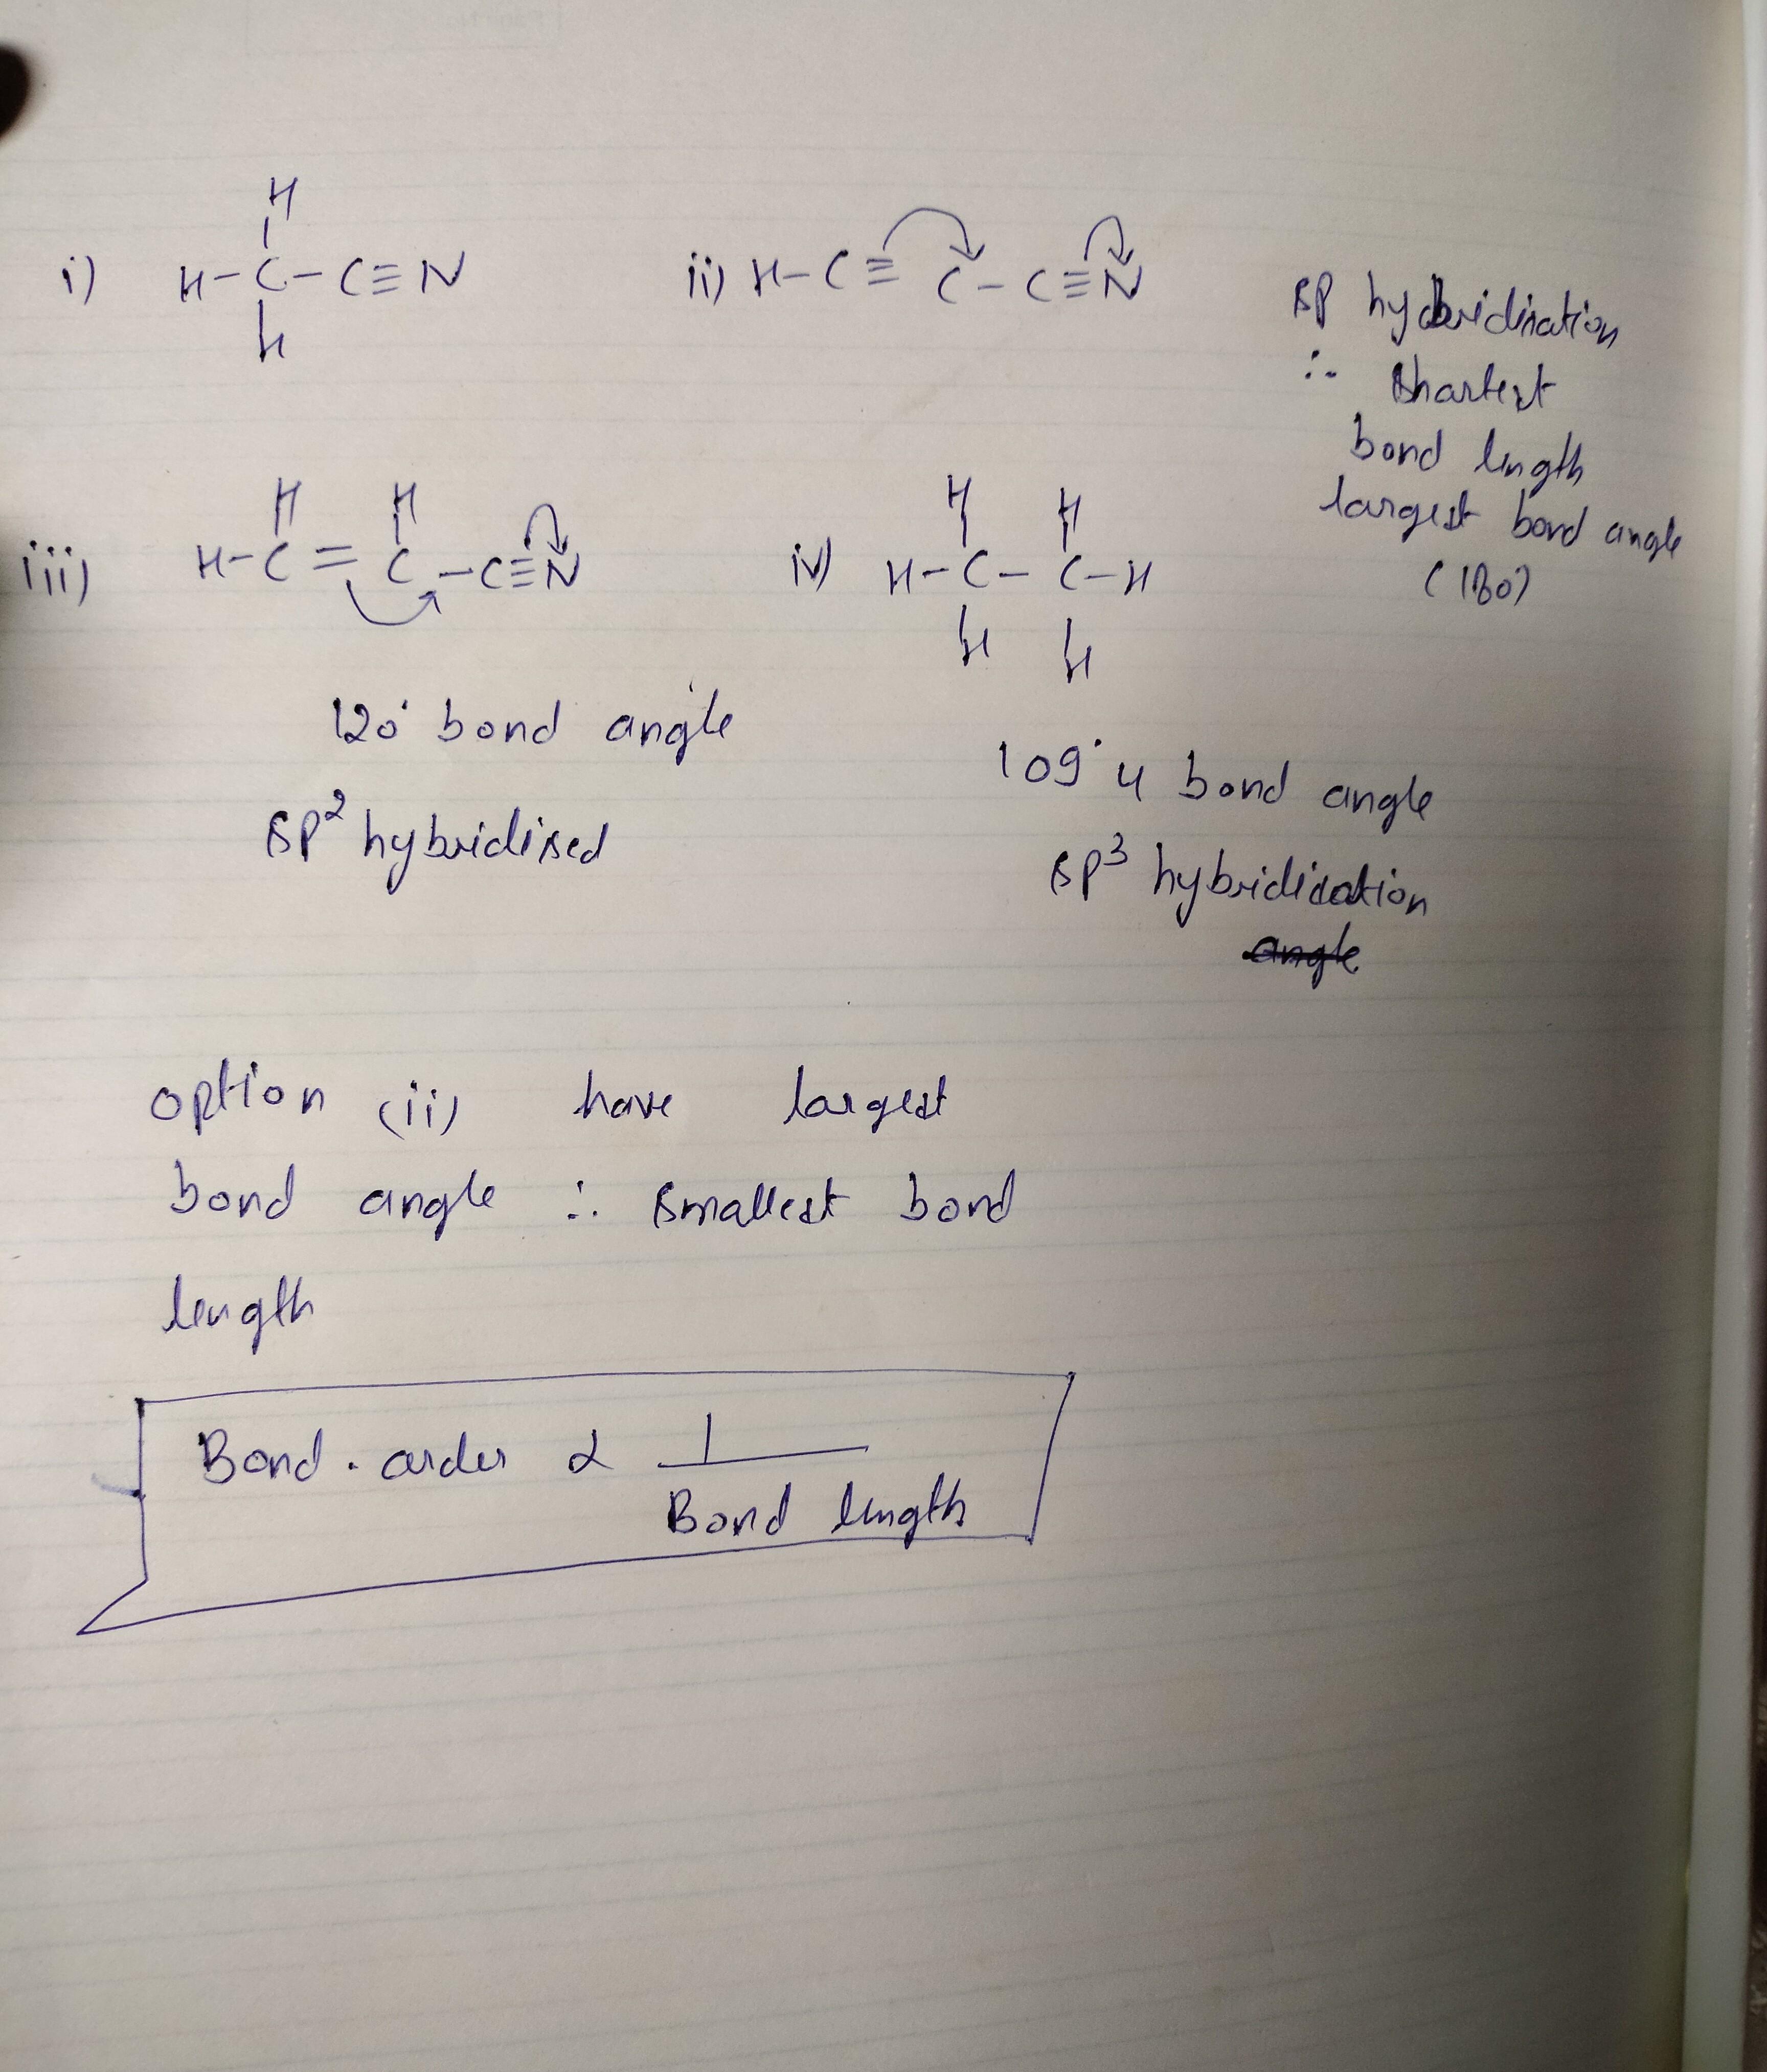 H
i) H-C-C≡N
H
ii) H-C≡C-C≡N
SP hybridisation
∴ Shortest
bond length
largest bond angle
(180°)
H H
iii) H-C=C-C≡N
120° bond angle
SP² hybridised
H H
iv) H-C-C-H
H H
109°4 bond angle
SP³ hybridisation
angle
option (ii) have largest
bond angle ∴ Smallest bond
length
Bond. order α 1
Bond length